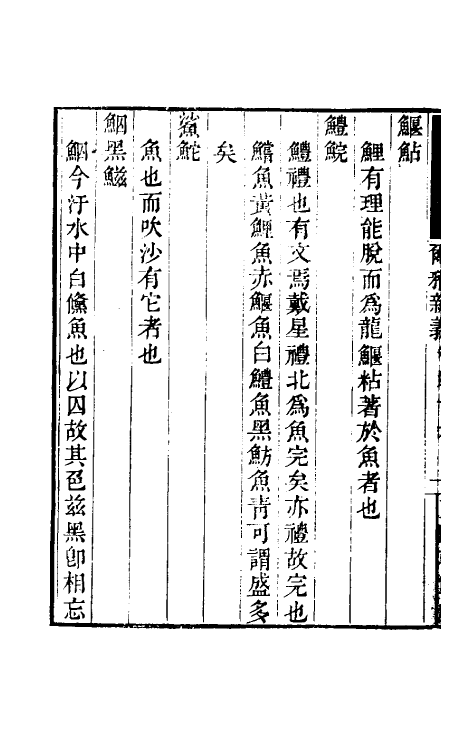 爾雅新義
鰋鮎
鯉有理能脫而爲龍鰋粘著於魚者也
鱧鯇
鱧禮也有文焉戴星禮北爲魚完矣亦禮故完也
鱣魚黃鯉魚赤鰋魚白鱧魚黑魴魚青可謂盛多
矣
鯊鮀
魚也而吹沙有它者也
鮂黑鰦
鮂今汙水中白鯈魚也以囚故其色玆黑卽相忘